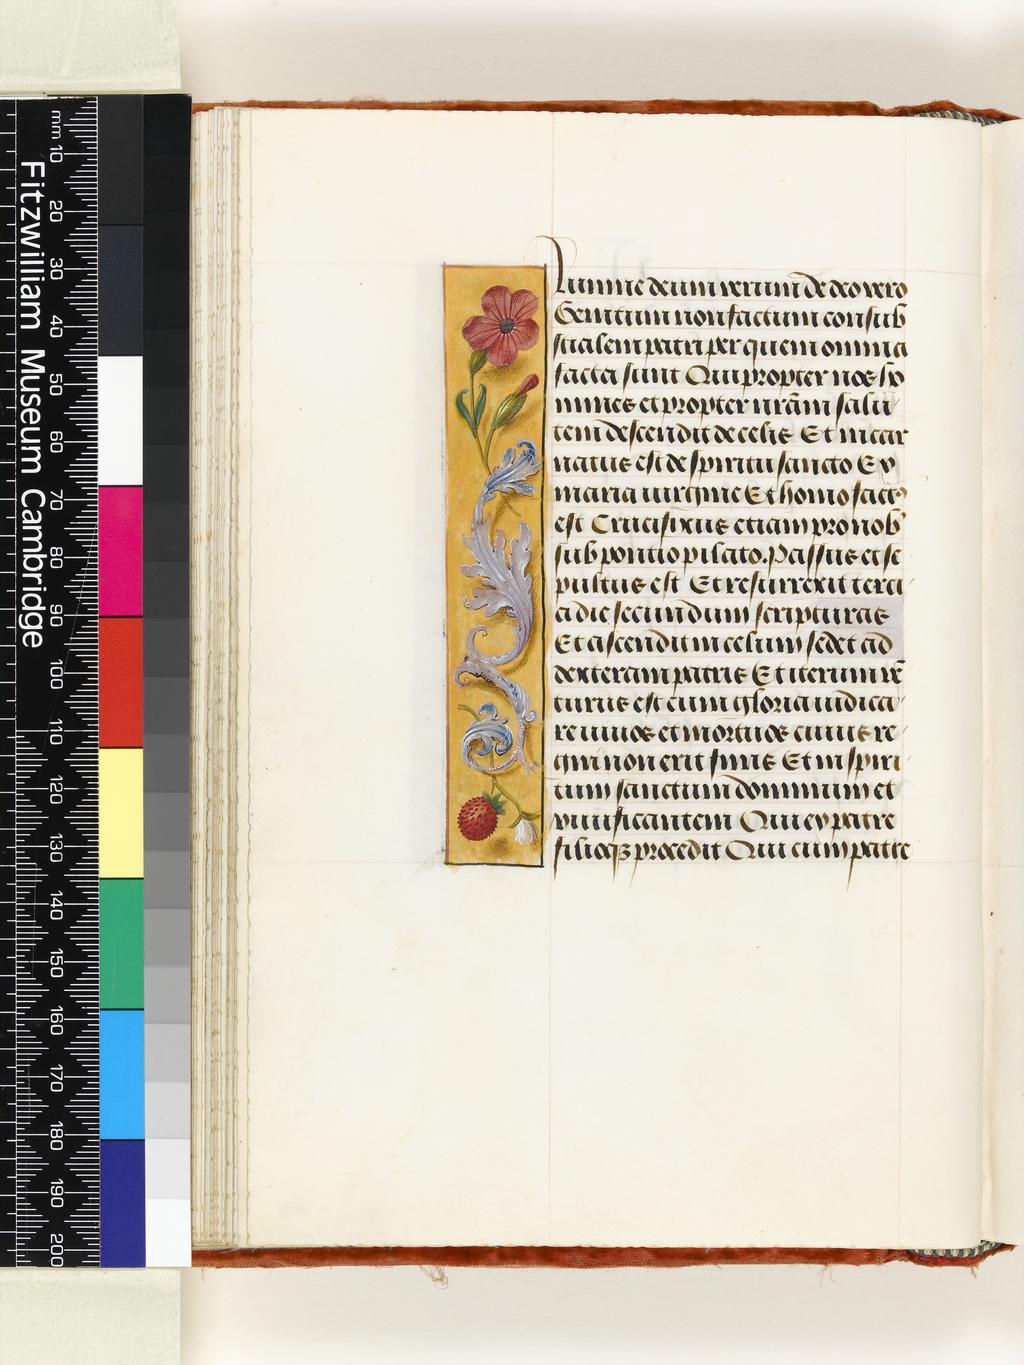 Fitzwilliam Museum Cambridge
mm 10 20 30 40 50 60 70 80 90 100 110 120 130 140 150 160 170 180 190 200
Lumine deum verum de deo vero
Genitum non factum consub
stialem patri per quem omnia
facta sunt Qui propter nos ho
mines et propter nrām salu
tem descendit de celis Et incar
natus est de spiritu sancto Ex
maria virgine Et homo fact⁹
est Crucifixus etiam pro nob
sub pontio pilato. Passus et se
pultus est Et resurrexit terci
a die secundum scripturas
Et ascendit in celum sedet ad
dexteram patris Et iterum vē
turus est cum gloria iudica
re vivos et mortuos cuius re
gni non erit finis Et in spiri
tum sanctum dominum et
vivificantem Qui ex patre
filioqꝫ procedit Qui cum patre